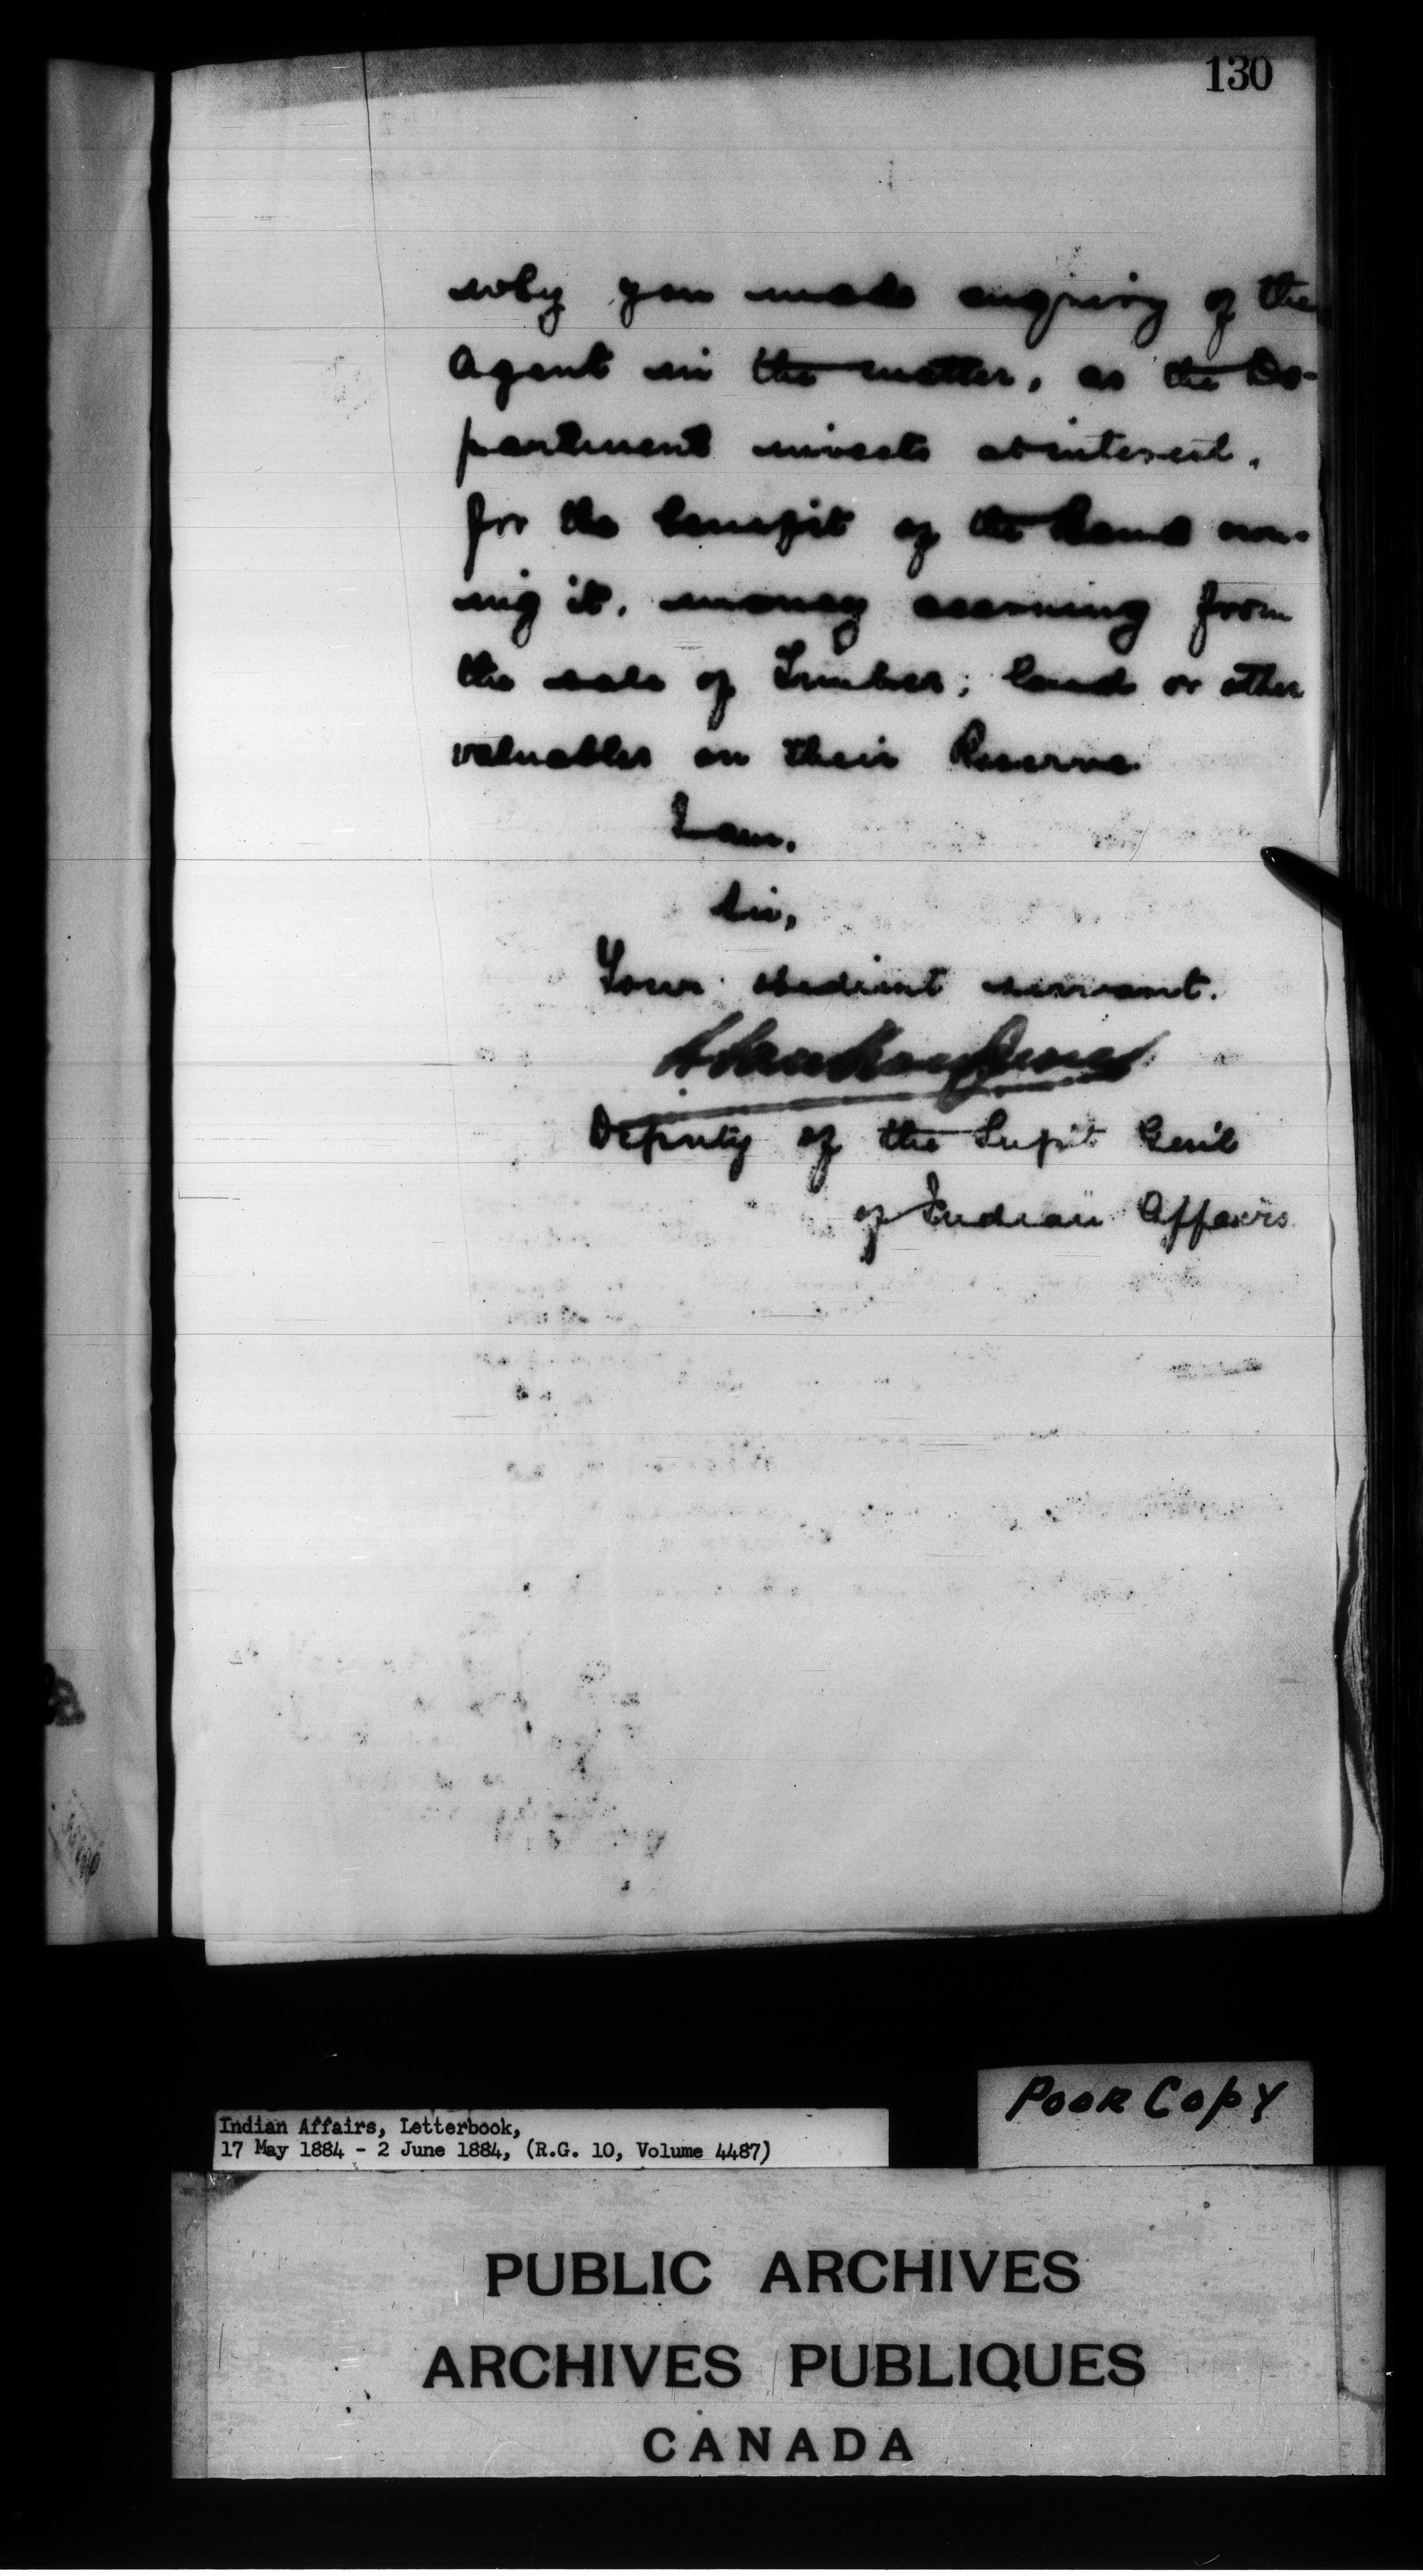 130
why you made enquiry of the
Agent in the matter, as the De-
partment invests at interest,
for the benefit of the Band own-
ing it, money accruing from
the sale of Timber, land or other
valuables on their Reserve.
I am,
Sir,
Your obedient servant.
Deputy of the Supt Genl
of Indian Affairs
POOR COPY
Indian Affairs, Letterbook,
17 May 1884 - 2 June 1884, (R.G. 10, Volume 4487)
PUBLIC ARCHIVES
ARCHIVES PUBLIQUES
CANADA